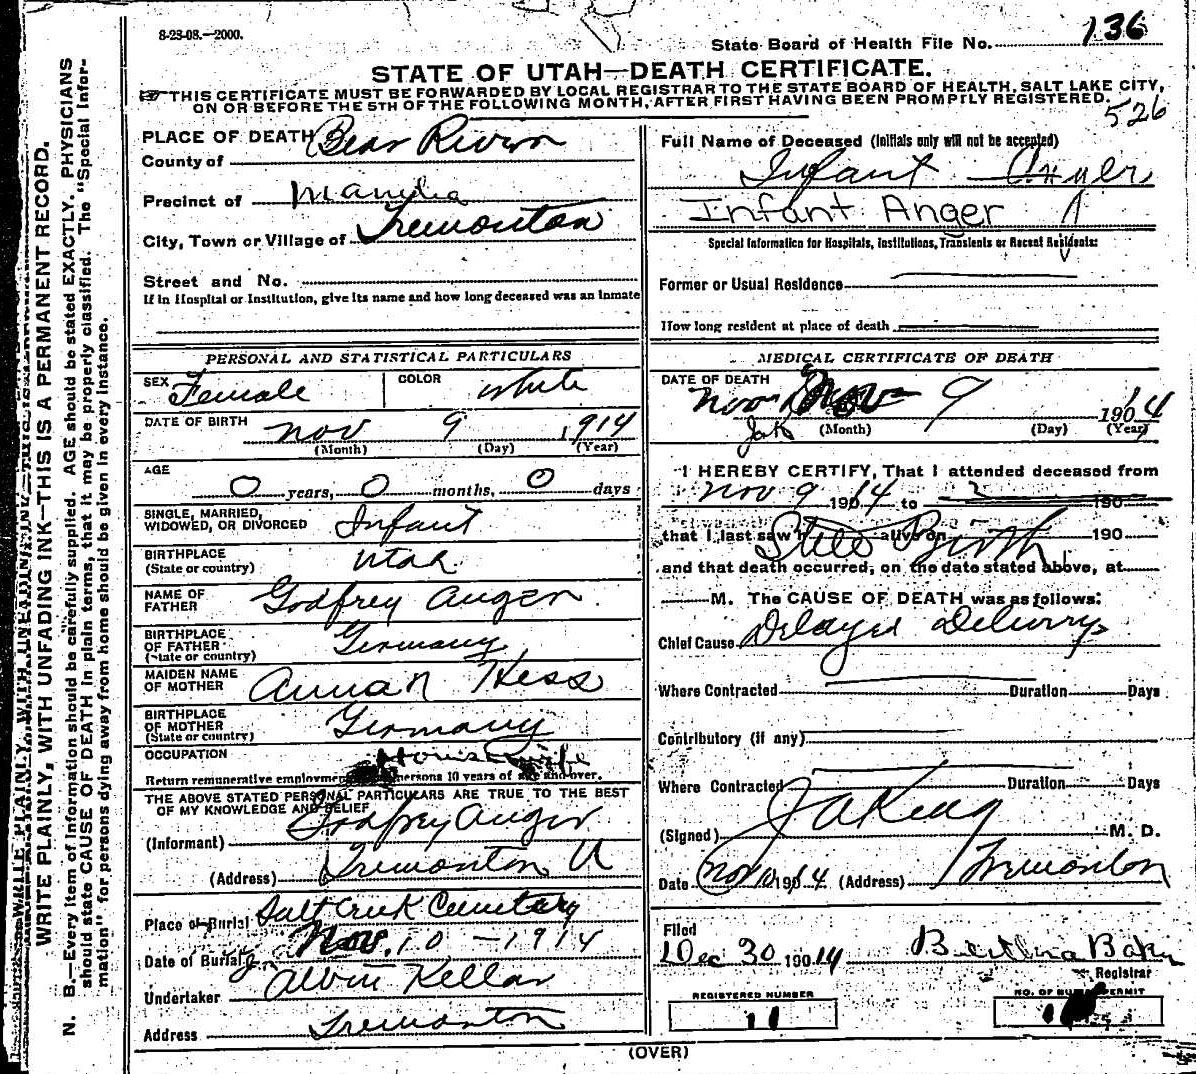 8-23-08.—2000.
State Board of Health File No. 136
STATE OF UTAH—DEATH CERTIFICATE.
THIS CERTIFICATE MUST BE FORWARDED BY LOCAL REGISTRAR TO THE STATE BOARD OF HEALTH, SALT LAKE CITY,
ON OR BEFORE THE 5TH OF THE FOLLOWING MONTH, AFTER FIRST HAVING BEEN PROMPTLY REGISTERED.
526
WRITE PLAINLY, WITH UNFADING INK—THIS IS A PERMANENT RECORD.
N. B.—Every item of information should be carefully supplied. AGE should be stated EXACTLY. PHYSICIANS
should state CAUSE OF DEATH in plain terms, that it may be properly classified. The "Special Infor-
mation" for persons dying away from home should be given in every instance.
PLACE OF DEATH Bear River
County of
Precinct of Manila
City, Town or Village of Tremonton
Street and No.
If in Hospital or Institution, give its name and how long deceased was an inmate
PERSONAL AND STATISTICAL PARTICULARS
SEX Female COLOR white
DATE OF BIRTH Nov 9 1914
(Month) (Day) (Year)
AGE
0 years, 0 months, 0 days
SINGLE, MARRIED,
WIDOWED, OR DIVORCED Infant
BIRTHPLACE
(State or country) Utah
NAME OF
FATHER Godfrey Anger
BIRTHPLACE
OF FATHER
(State or country) Germany
MAIDEN NAME
OF MOTHER Anna Hess
BIRTHPLACE
OF MOTHER
(State or country) Germany
OCCUPATION Housewife
Return remunerative employment persons 10 years of age and over.
THE ABOVE STATED PERSONAL PARTICULARS ARE TRUE TO THE BEST
OF MY KNOWLEDGE AND BELIEF
(Informant) Godfrey Anger
(Address) Tremonton U
Place of Burial Salt Creek Cemetary
Date of Burial Nov. 10 - 1914
Undertaker Albin Kellar
Address Tremonton
Full Name of Deceased (Initials only will not be accepted)
Infant Anger
Infant Anger
Special Information for Hospitals, Institutions, Transients or Recent Residents:
Former or Usual Residence
How long resident at place of death
MEDICAL CERTIFICATE OF DEATH
DATE OF DEATH
Nov 9 1914
(Month) (Day) (Year)
JaK
I HEREBY CERTIFY, That I attended deceased from
Nov 9 190 14 to 190
that I last saw h alive on 190
Still Birth
and that death occurred, on the date stated above, at
M. The CAUSE OF DEATH was as follows:
Chief Cause Delayed Delivery
Where Contracted Duration Days
Contributory (if any)
Where Contracted Duration Days
(Signed) JaKing M. D.
Date Nov 10 1914 (Address) Tremonton
Filed
Dec 30 190 14
Registrar
REGISTERED NUMBER
11
NO. OF BURIAL PERMIT
(OVER)